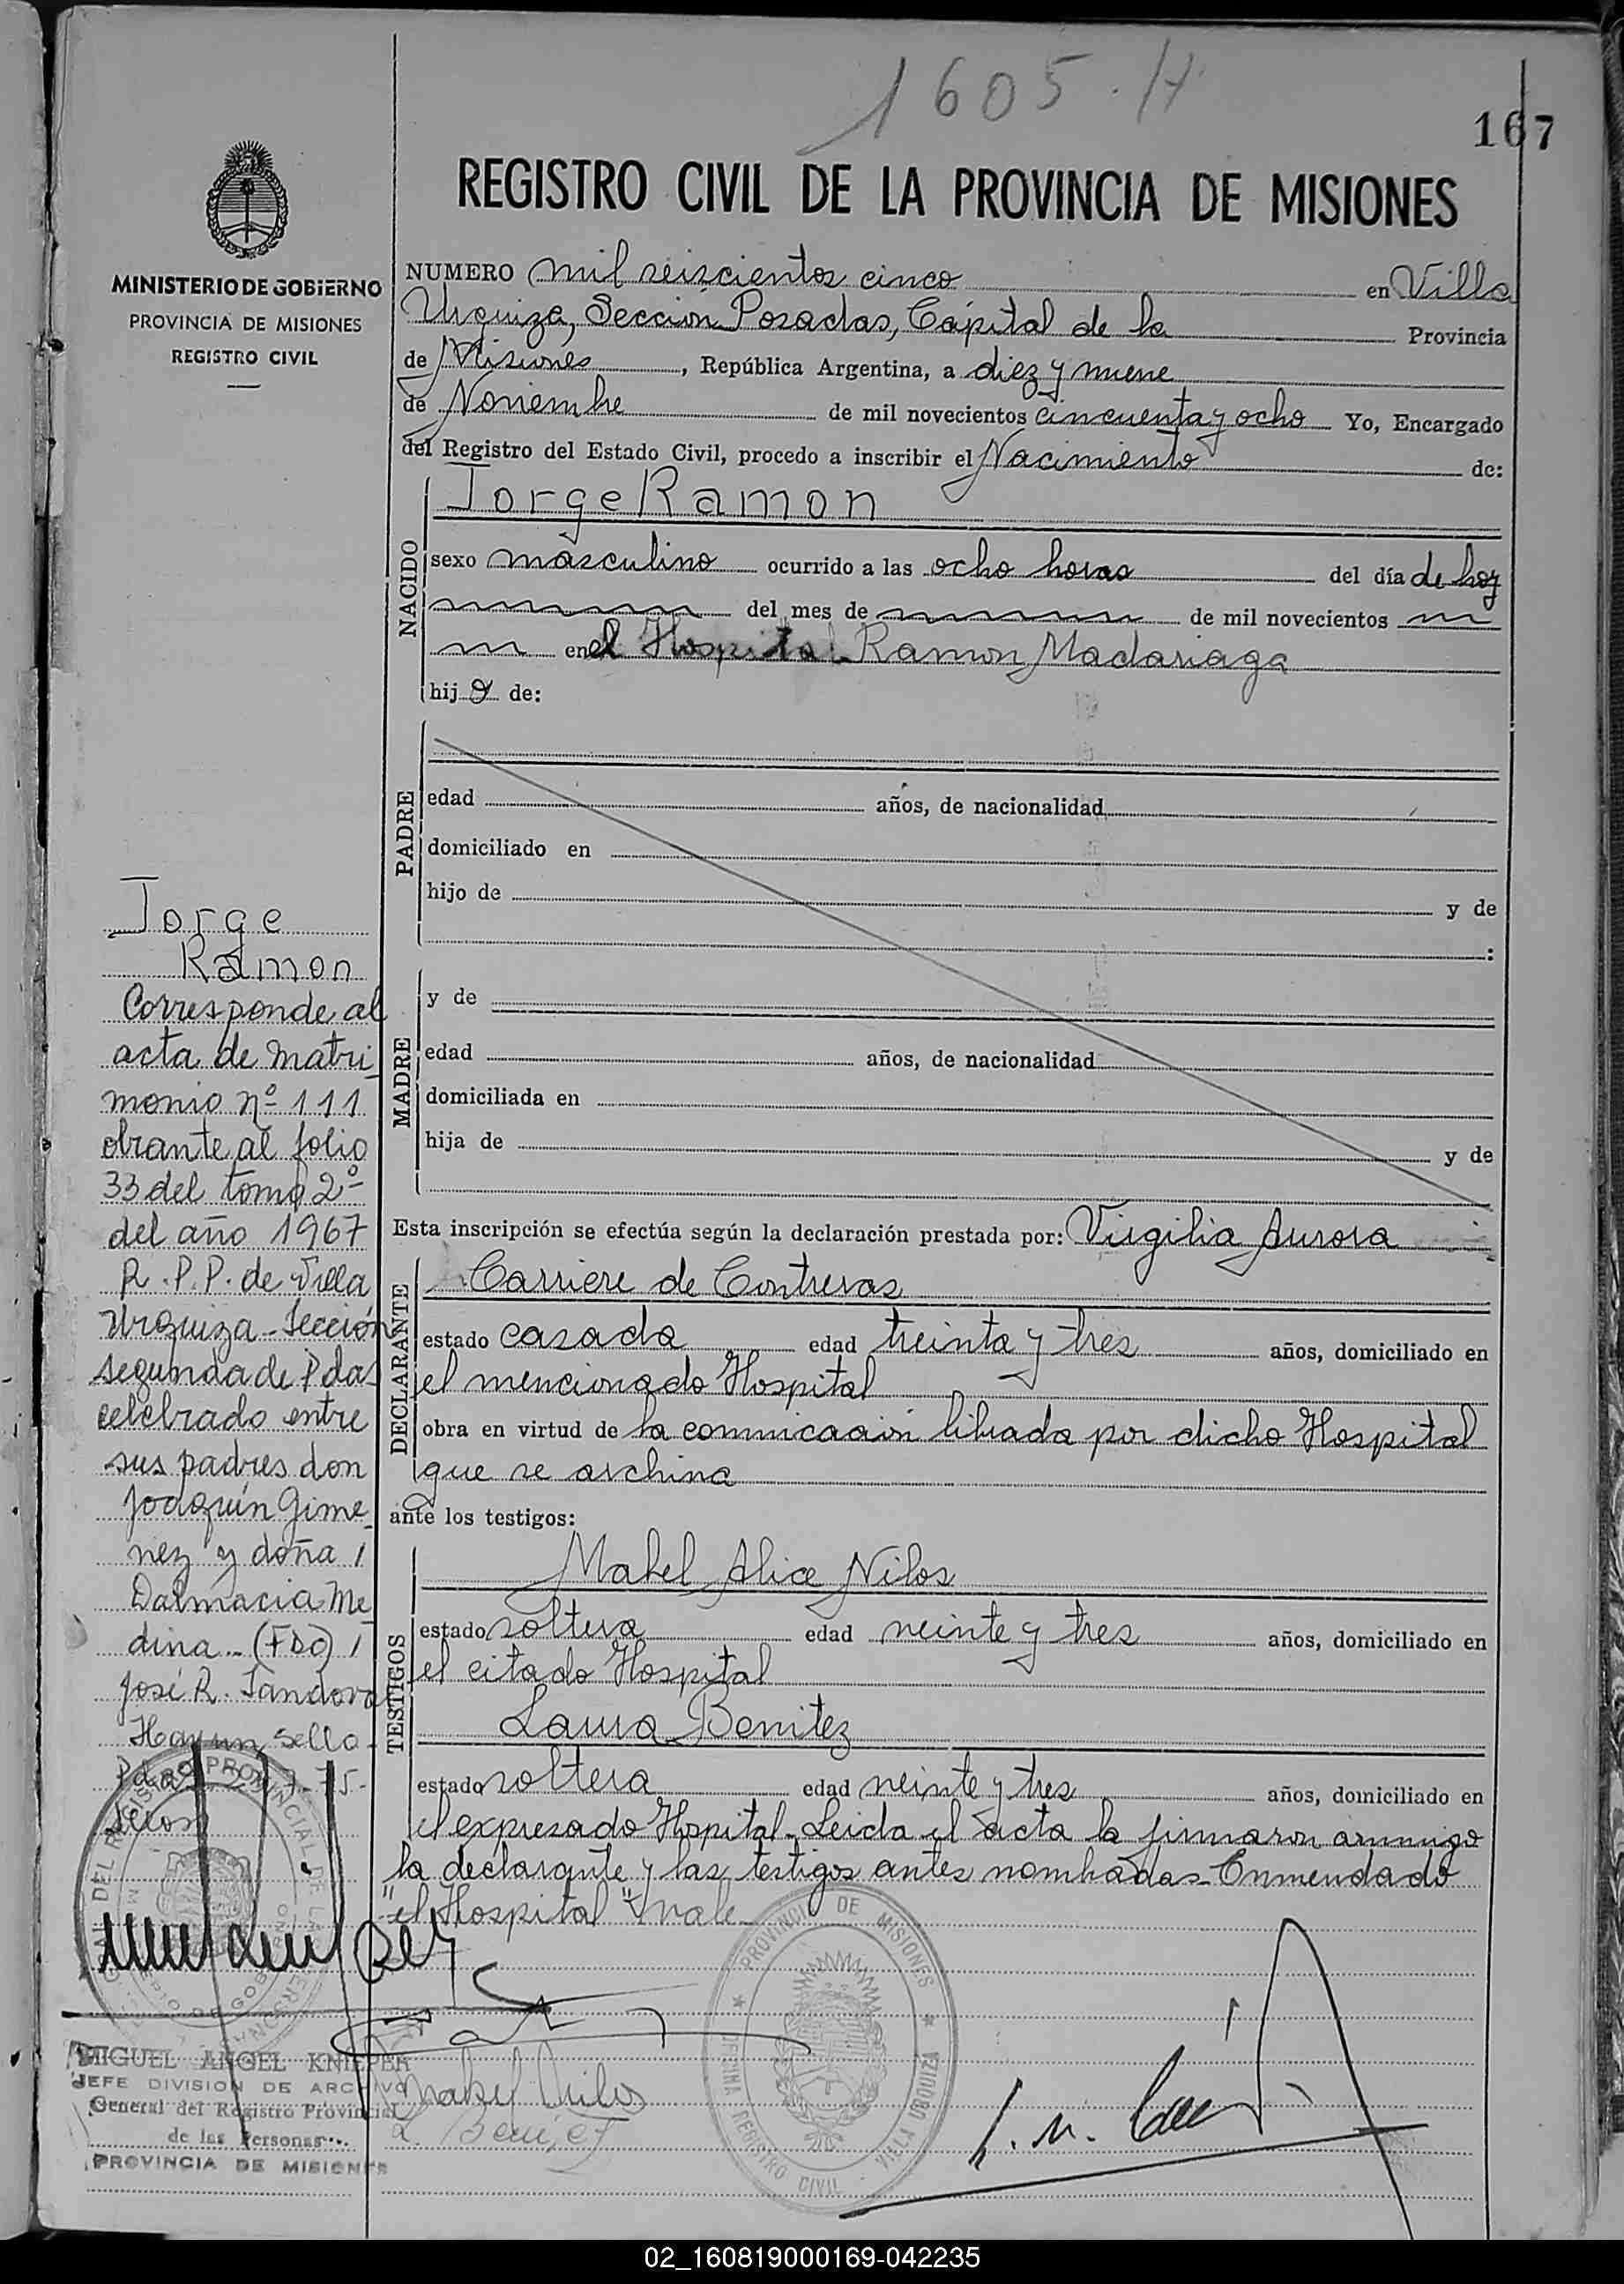 1605.H
167
REGISTRO CIVIL DE LA PROVINCIA DE MISIONES
MINISTERIO DE GOBIERNO
PROVINCIA DE MISIONES
REGISTRO CIVIL
NUMERO mil seiscientos cinco en Villa
Urquiza, Sección Posadas, Capital de la Provincia
de Misiones, República Argentina, a diez y nueve
de Noviembre de mil novecientos cincuenta y ocho Yo, Encargado
del Registro del Estado Civil, procedo a inscribir el Nacimiento de:
NACIDO
Jorge Ramon
sexo masculino ocurrido a las ocho horas del día de hoy
del mes de de mil novecientos
en el Hospital Ramon Madariaga
hijo de:
PADRE
edad años, de nacionalidad
domiciliado en
hijo de y de
:
MADRE
y de
edad años, de nacionalidad
domiciliada en
hija de y de
Esta inscripción se efectúa según la declaración prestada por: Virgilia Aurora
DECLARANTE
Carriere de Contreras
estado casada edad treinta y tres años, domiciliado en
el mencionado Hospital
obra en virtud de la comunicación librada por dicho Hospital
que se archiva
ante los testigos:
TESTIGOS
Mabel Alice Nilos
estado soltera edad veinte y tres años, domiciliado en
el citado Hospital
Laura Benitez
estado soltera edad veinte y tres años, domiciliado en
el expresado Hospital. Leida el acta la firmaron conmigo
la declarante y las testigos antes nombradas. Enmendado
"el Hospital" vale
Jorge
Ramon
Corresponde al
acta de matri
monio nº 111
obrante al folio
33 del tomo 2º
del año 1967
R.P.P. de Villa
Urquiza - Sección
segunda de Pdas
celebrado entre
sus padres don
Joaquín Gime
nez y doña
Dalmacia Me
dina.. (FDO)
José R. Sandoval
Hay un sello
MIGUEL ANGEL KNIEPER
JEFE DIVISION DE ARCHIVO
General del Registro Provincial
de las Personas
PROVINCIA DE MISIONES
Mabel Nilos
L. Benitez
PROVINCIA DE MISIONES
OFICINA REGISTRO CIVIL - VILLA URQUIZA
02_160819000169-042235